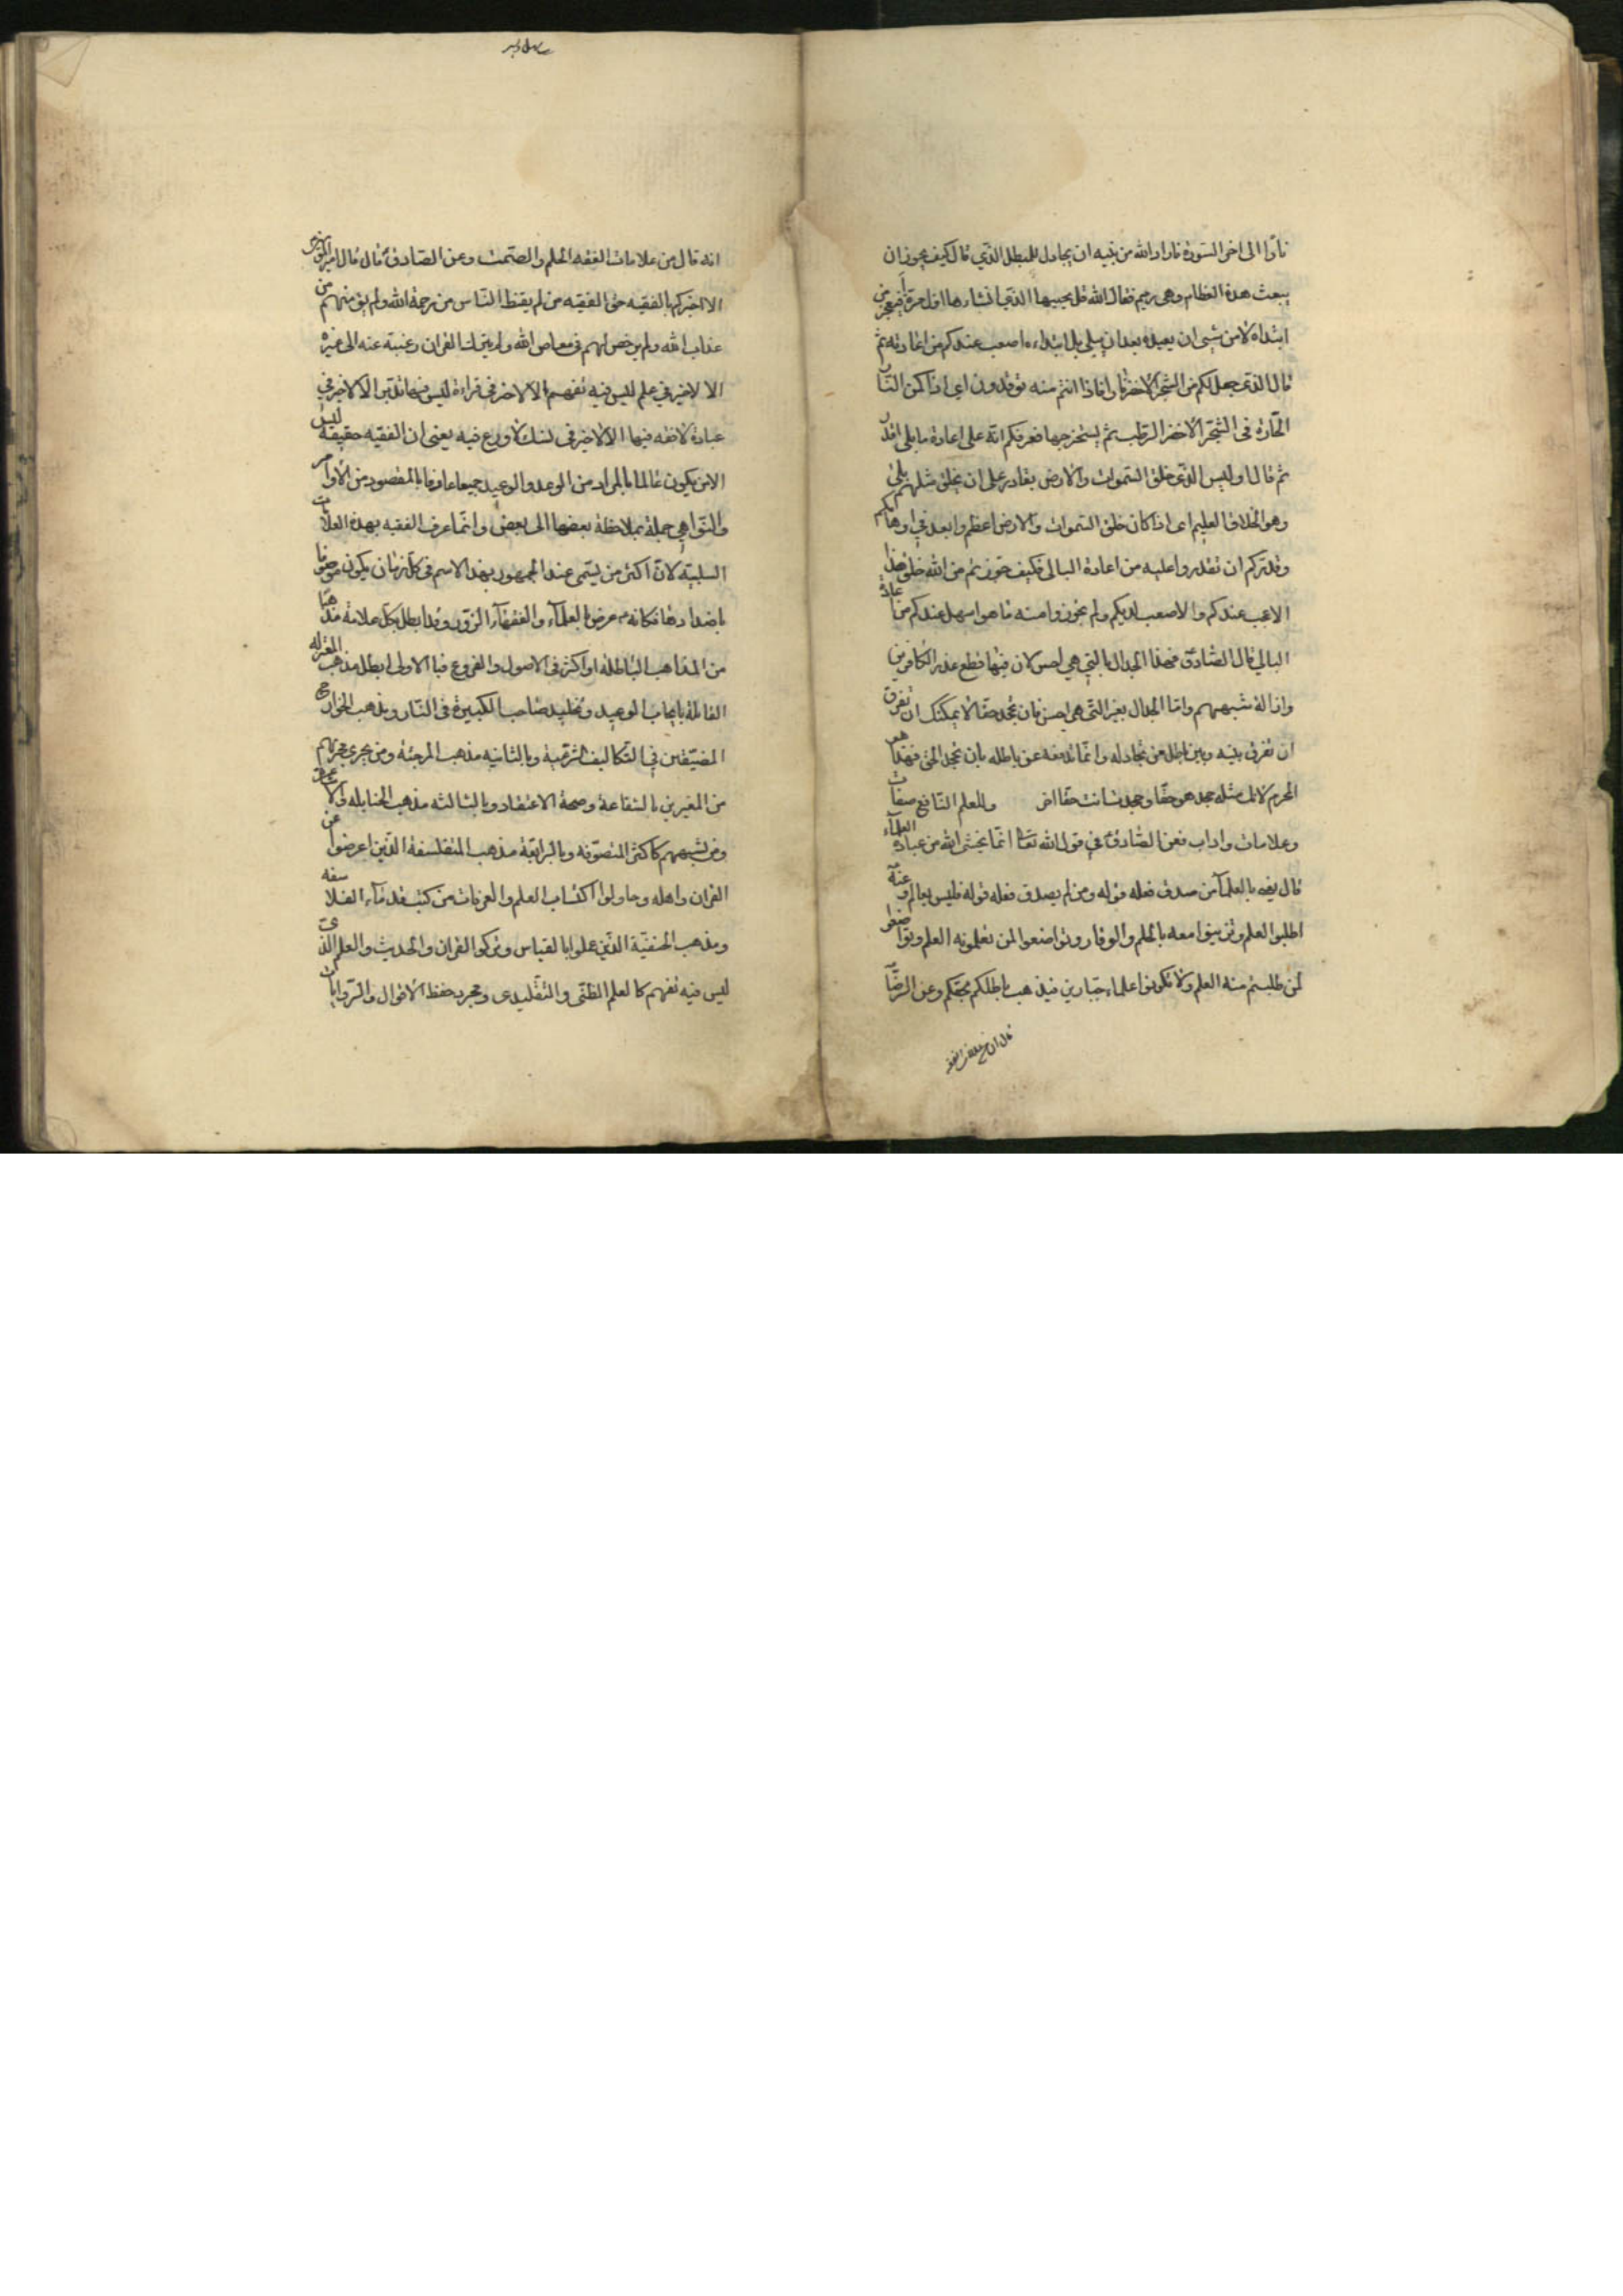 نارا الى اخر السورة فاراد الله من نبيه ان يجادل المبطل الذي قال كيف يجوز ان
يبعث هذه العظام وهي رميم فقال الله قل يحييها الذي انشاءها اول مرة افيعجز من
ابتداه لا من شيئ ان يعيده بعد ان يبلى بل ابتداءه اصعب عندكم من اعادته ثم
قال الذى جعل لكم من الشجر الاخضر نارا فاذا انتم منه توقدون اى اذا كمن النار
الحارة فى الشجر الاخضر الرطب ثم يستخرجها فعرفكم انه على اعادة ما بلى اقدر
ثم قال اوليس الذى خلق السموات والارض بقادر على ان يخلق مثلهم بلى
وهو الخلاق العليم اى اذا كان خلق السموات والارض اعظم وابعد في اوهامكم
وقدركم ان تقدروا عليه من اعادة البالى فكيف جوزتم من الله خلق هذا
الاعجب عندكم والاصعب لديكم ولم تجوزوا منه ما هو اسهل عندكم من اعادة
البالي قال الصادق فهذا الجدال بالتي هي احسن لان فيها قطع عذر الكافرين
وازالة شبههم واما الجدال بغير التى هي احسن فان تجحد حقا لا يمكنك ان تفرق
ان تفرق بينه وبين باطل من تجادله وانما تدفعه عن باطله بان تجحد الحق فهذا هو
المحرم لانك مثله جحد هو حقا وجحدت انت حقا اخر وللعلم النافع صفات
وعلامات واداب فعن الصادق في قول الله تعا انما يخشى الله من عباده العلماء
قال يعنى بالعلماء من صدق فعله قوله ومن لم يصدق فعله قوله فليس بعالم وعنه
اطلبوا العلم وتزينوا معه بالحلم والوقار وتواضعوا لمن تعلمونه العلم وتواضعوا
لمن طلبتم منه العلم ولا تكونوا علماء جبارين فيذهب باطلكم بحقكم وعن الرضا
انه قال من علامات الفقه الحلم والصمت وعن الصادق قال قال امير المؤمنين
الا اخبركم بالفقيه حق الفقيه من لم يقنط الناس من رحمة الله ولم يؤمنهم من
عذاب الله ولم يرخص لهم فى معاصى الله ولم يترك القران رغبة عنه الى غيره
الا لا خير في علم ليس فيه تفهم الا لا خير فى قراءة ليس فيها تدبر الا لا خير في
عبادة لا فقه فيها الا لا خير فى نسك لا ورع فيه يعنى ان الفقيه حقيقة ليس
الا من يكون عالما بالمراد من الوعد والوعيد جميعا عارفا بالمقصود من الاوامر
والنواهي جملة بملاحظة بعضها الى بعض وانما عرف الفقيه بهذه العلامات
السلبية لان اكثر من يسمى عند الجمهور بهذا الاسم فى كل زمان يكون موصوفا
باضدادها فكانه عرض بالعلماء والفقهاء الزور وقد ابطل بكل علامة مذهبا
من المذاهب الباطلة او اكثر فى الاصول والفروع فبا الاولى ابطل مذهب المعتزله
القائلة بايجاب الوعيد وتخليد صاحب الكبيرة فى النار ومذهب الخوارج
المضيقين في التكاليف الشرعية وبالثانيه مذهب المرجئة ومن يجرى مجريهم
من المغترين بالشفاعة وصحة الاعتقاد وبالثالثه مذهب الحنابله والاشعرية
ومن يشبههم كاكثر المتصوفه وبالرابعة مذهب المتفلسفة الذين اعرضوا عن
القران واهله وحاولوا اكتساب العلم والعرفان من كتب قدماء الفلاسفه
ومذهب الحنفية الذين عملوا بالقياس وتركوا القران والحديث والعلم الذى
ليس فيه تفهم كالعلم الظنى والتقليدى ومجرد حفظ الاقوال والروايات